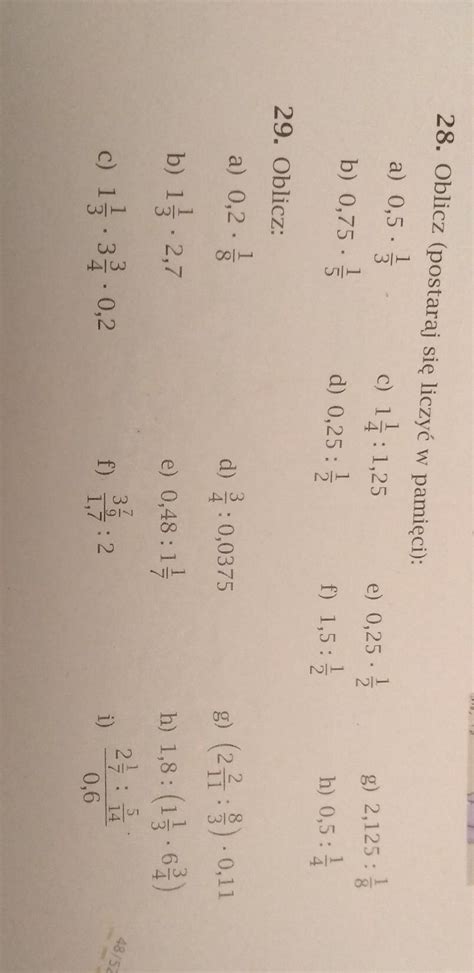 28. Oblicz (postaraj się liczyć w pamięci):
a) 0,5 · 1/3 c) 1 1/4 : 1,25 e) 0,25 · 1/2 g) 2,125 : 1/8
b) 0,75 · 1/5 d) 0,25 : 1/2 f) 1,5 : 1/2 h) 0,5 : 1/4
29. Oblicz:
a) 0,2 · 1/8 d) 3/4 : 0,0375 g) (2 2/11 : 8/3) · 0,11
b) 1 1/3 · 2,7 e) 0,48 : 1 1/7 h) 1,8 : (1 1/3 · 6 3/4)
c) 1 1/3 · 3 3/4 · 0,2 f) 3 7/9 / 1,7 : 2 i) 2 1/7 : 5/14 / 0,6